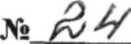 № 24